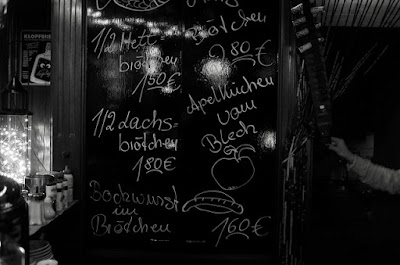 1/2 Mett-
brötchen
1,50€
1/2 Lachs-
brötchen
1,80€
Bockwurst
im
Brötchen
1,60€
Brötchen
2,80€
Apfelkuchen
vom
Blech